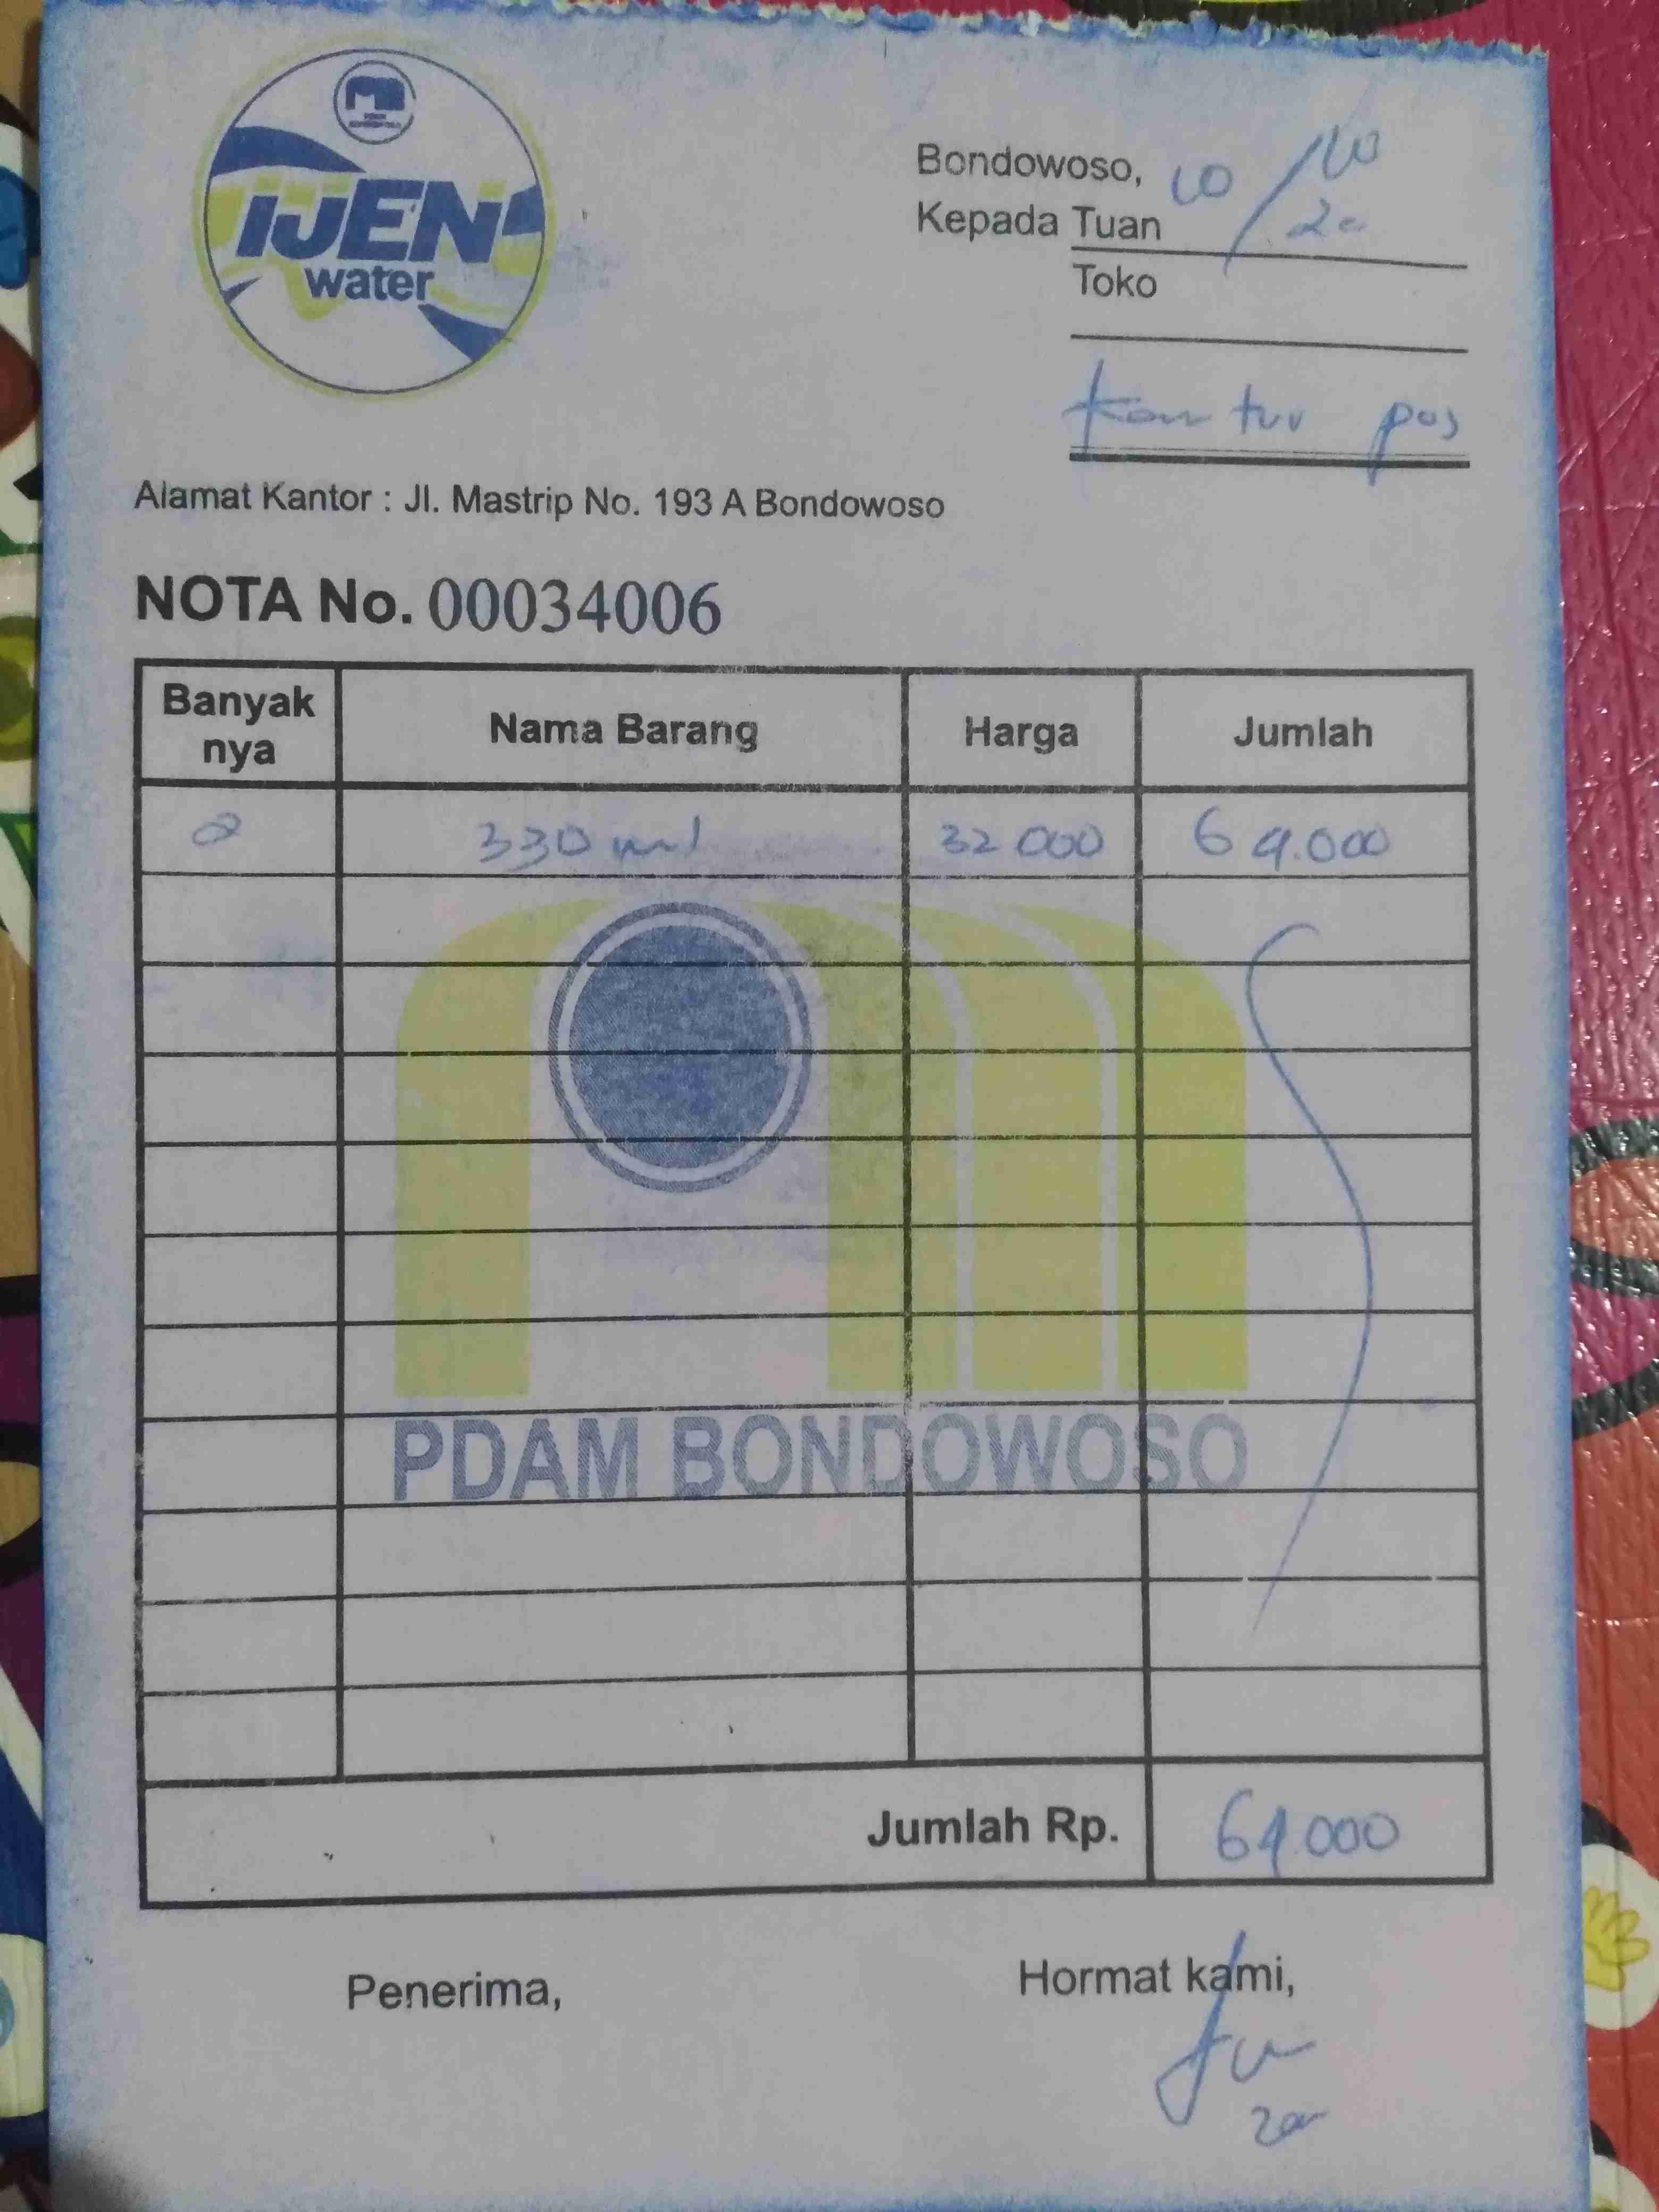 IJEN
water
Bondowoso, 10/10
20
Kepada Tuan
Toko
Kantor pos
Alamat Kantor : Jl. Mastrip No. 193 A Bondowoso
NOTA No. 00034006
Banyak nya Nama Barang Harga Jumlah
2 330 ml 32 000 64.000
PDAM BONDOWOSO
Jumlah Rp. 64.000
Penerima, Hormat kami,